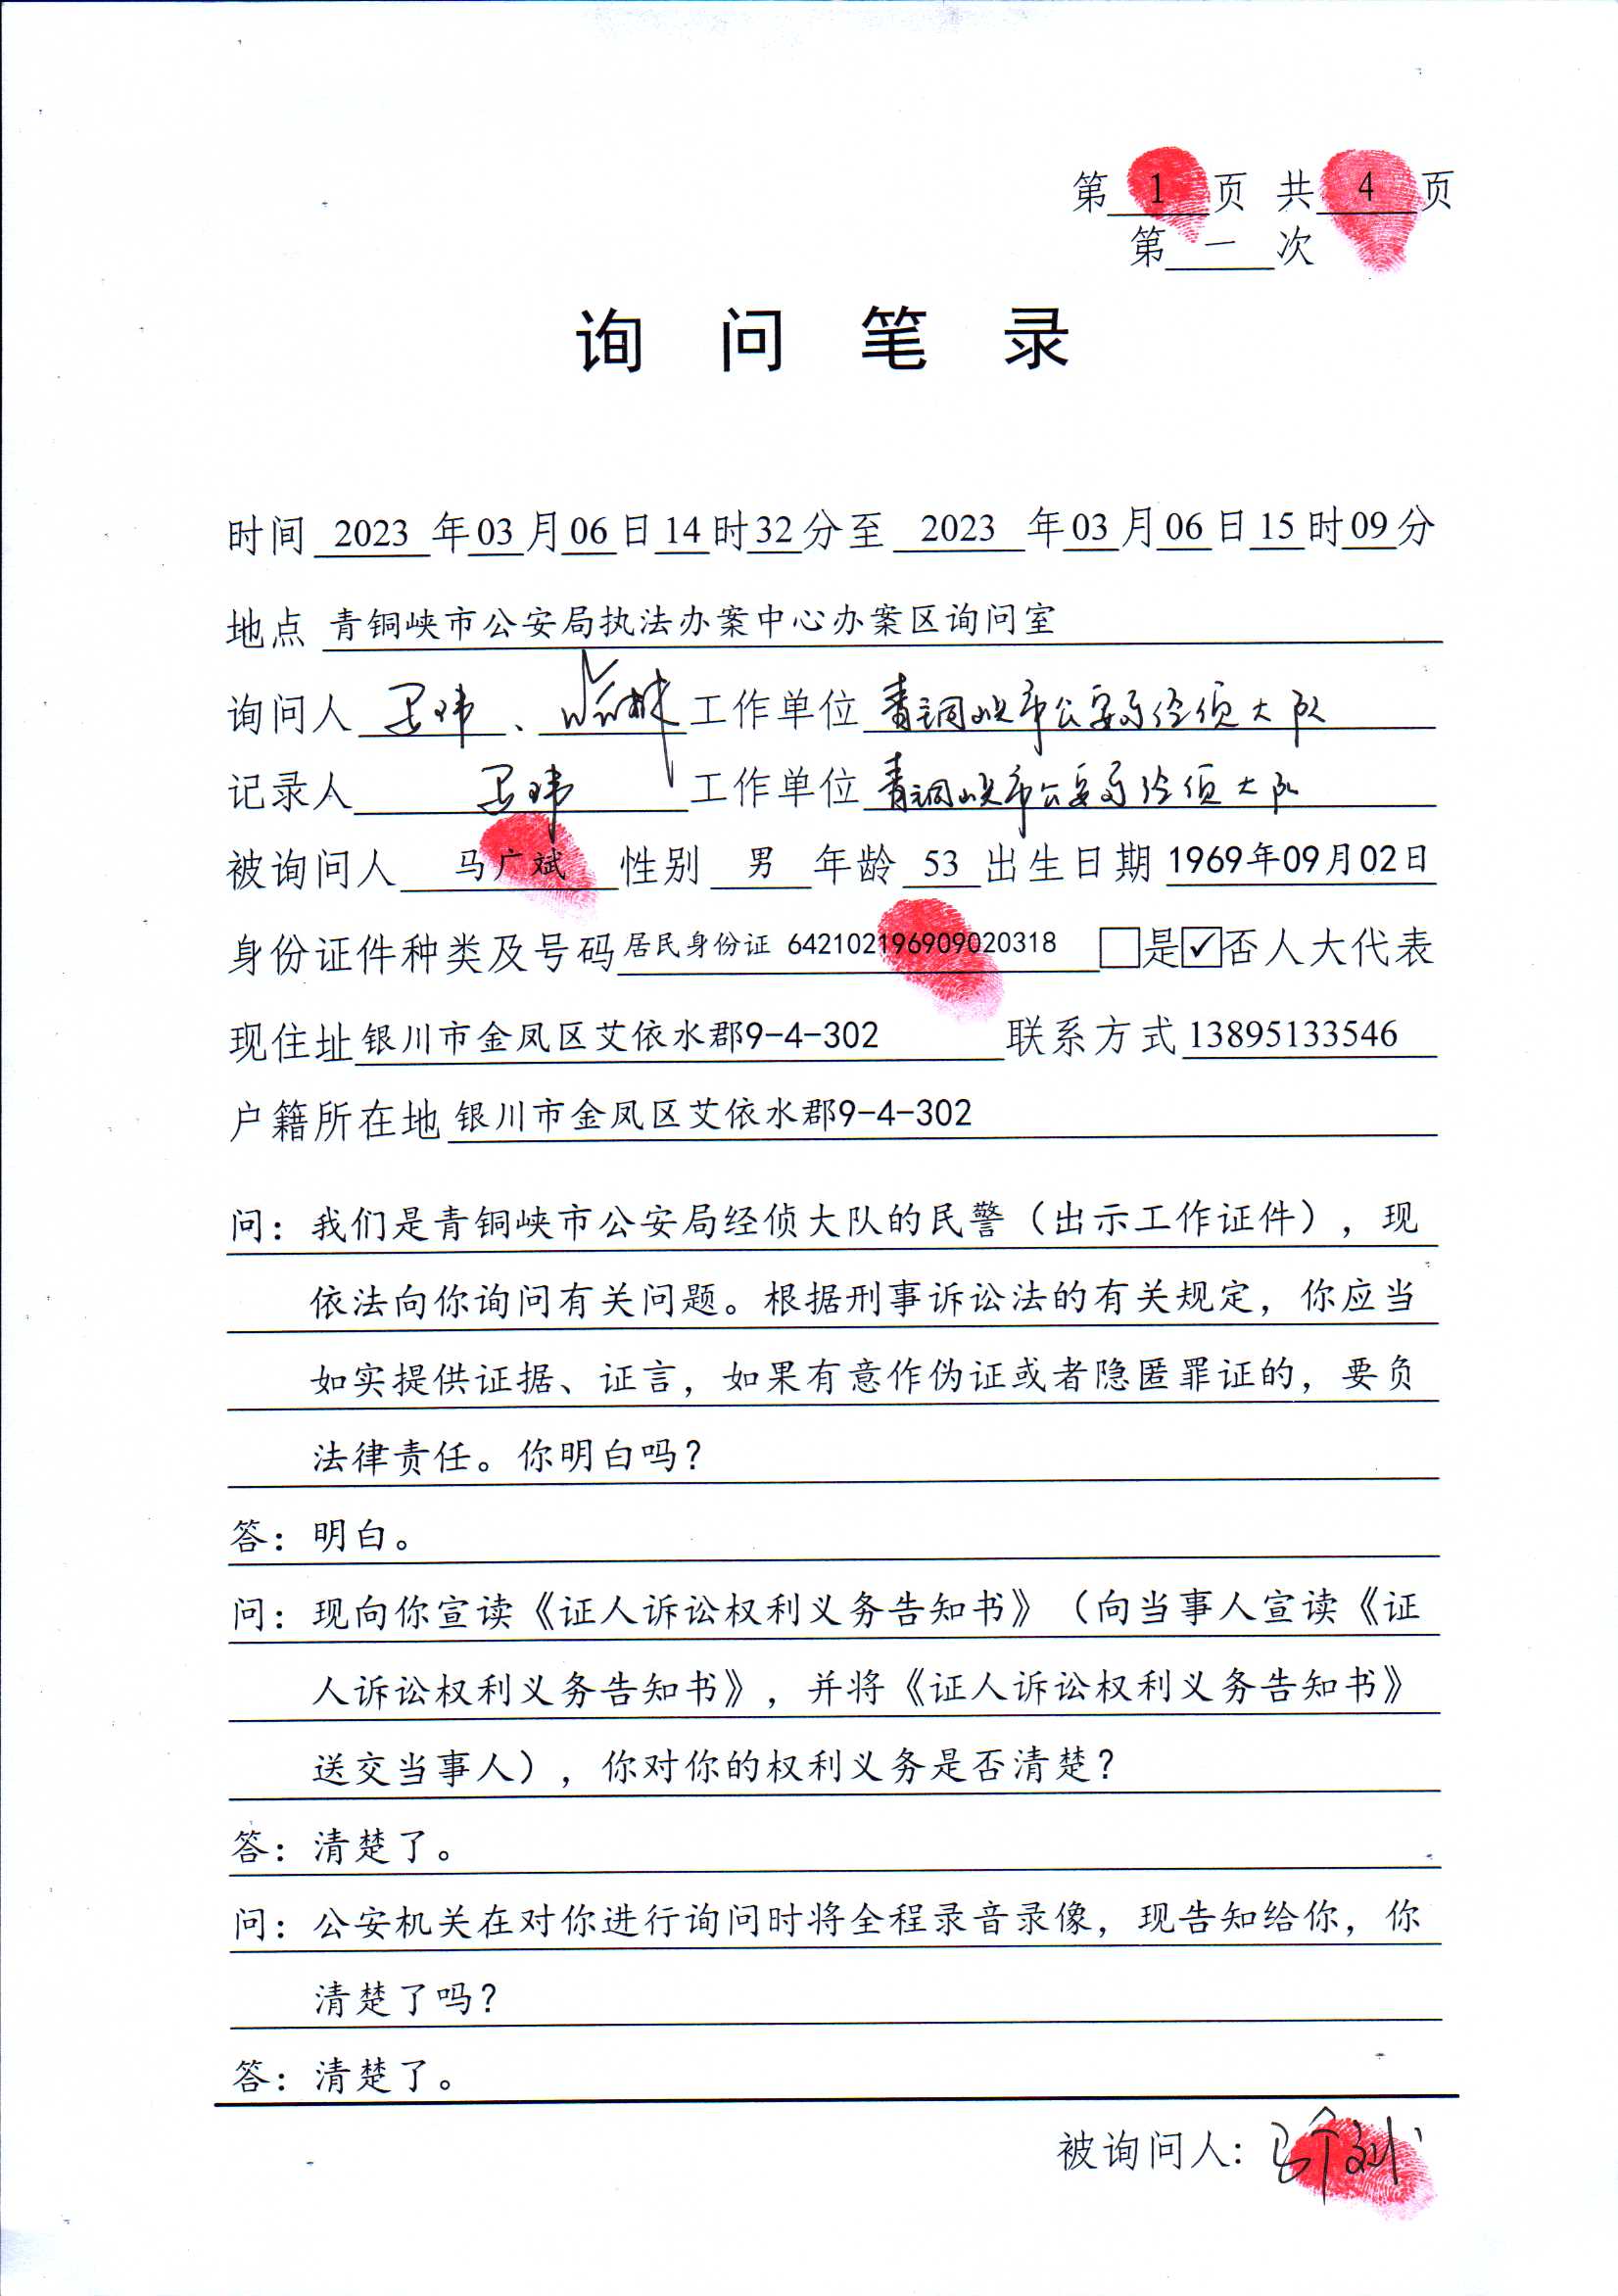 第 1 页 共 4 页
第 一 次
询问笔录
时间 2023 年03月06日14时32分至 2023 年03月06日15时09分
地点 青铜峡市公安局执法办案中心办案区询问室
询问人 、 工作单位 青铜峡市公安局经侦大队
记录人 工作单位 青铜峡市公安局经侦大队
被询问人 马广斌 性别 男 年龄 53 出生日期 1969年09月02日
身份证件种类及号码 居民身份证 642102196909020318 □是☑否人大代表
现住址 银川市金凤区艾依水郡9-4-302 联系方式 13895133546
户籍所在地 银川市金凤区艾依水郡9-4-302
问：我们是青铜峡市公安局经侦大队的民警（出示工作证件），现
依法向你询问有关问题。根据刑事诉讼法的有关规定，你应当
如实提供证据、证言，如果有意作伪证或者隐匿罪证的，要负
法律责任。你明白吗？
答：明白。
问：现向你宣读《证人诉讼权利义务告知书》（向当事人宣读《证
人诉讼权利义务告知书》，并将《证人诉讼权利义务告知书》
送交当事人），你对你的权利义务是否清楚？
答：清楚了。
问：公安机关在对你进行询问时将全程录音录像，现告知给你，你
清楚了吗？
答：清楚了。
被询问人：马广斌